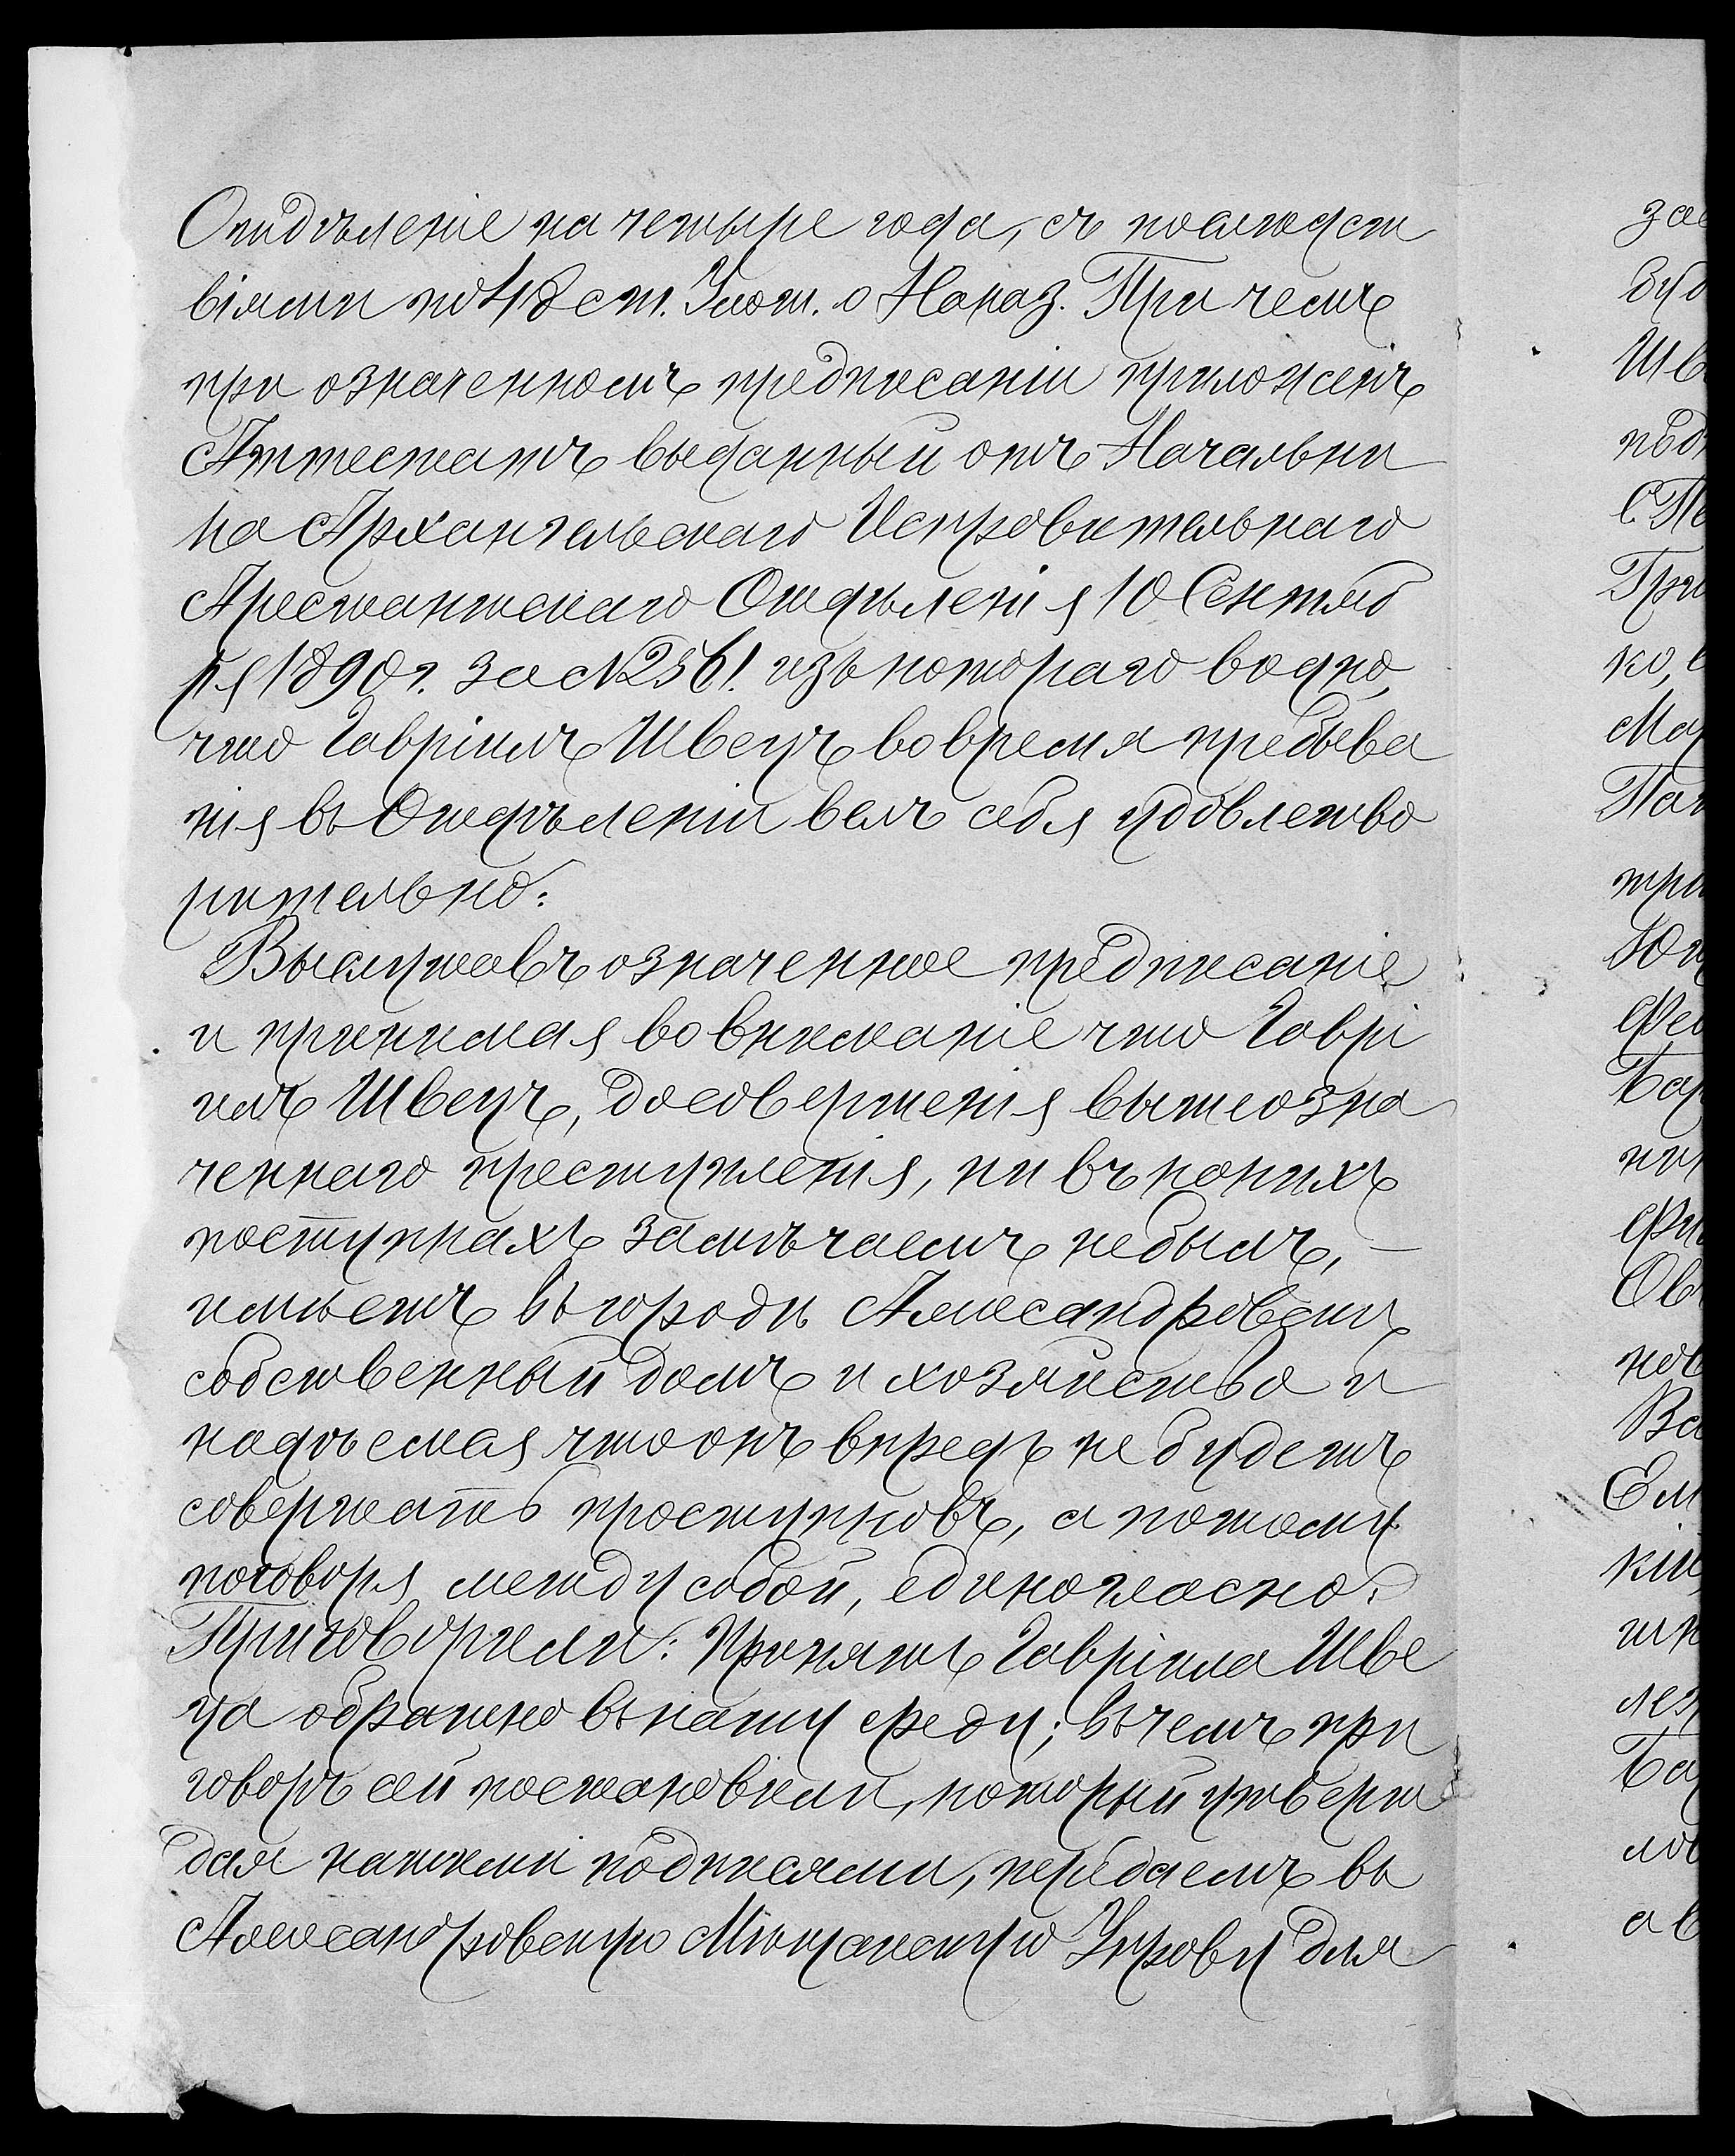 Отдѣленіе на четыре года, съ послѣдст
віями по 48 ст. Улож. о Наказ. При чемъ
при означенномъ предписаніи приложенъ
Аттестатъ выданный отъ Начальни
ка Архангельскаго Исправительнаго
Арестантскаго Отдѣленія 10 Сентяб
ря 1890 г. за № 2561. изъ котораго водно,
что Гавріилъ Швецъ во время пребыва
нія въ Отдѣленіи велъ себя удовлетво
рительно:
Выслушавъ означенное предписаніе
и принимая во вниманіе что Гаврі
илъ Швецъ, до совершенія вышеозна
ченнаго преступленія, ни въ какихъ
поступкахъ замѣчаемъ не былъ, —
имѣетъ въ городѣ Александровскѣ
собственный домъ и хозяйство и
надѣемся что онъ впредь не будетъ
совершать проступковъ, а потому
поговоря между собой, единогласно:
Приговорили: Принять Гавріила Шве
ца обратно въ нашу среду; въ чемъ при
говоръ сей постановили, который утверж
дая нашими подписями, передаемъ въ
Александровскую Мѣщанскую Управу для